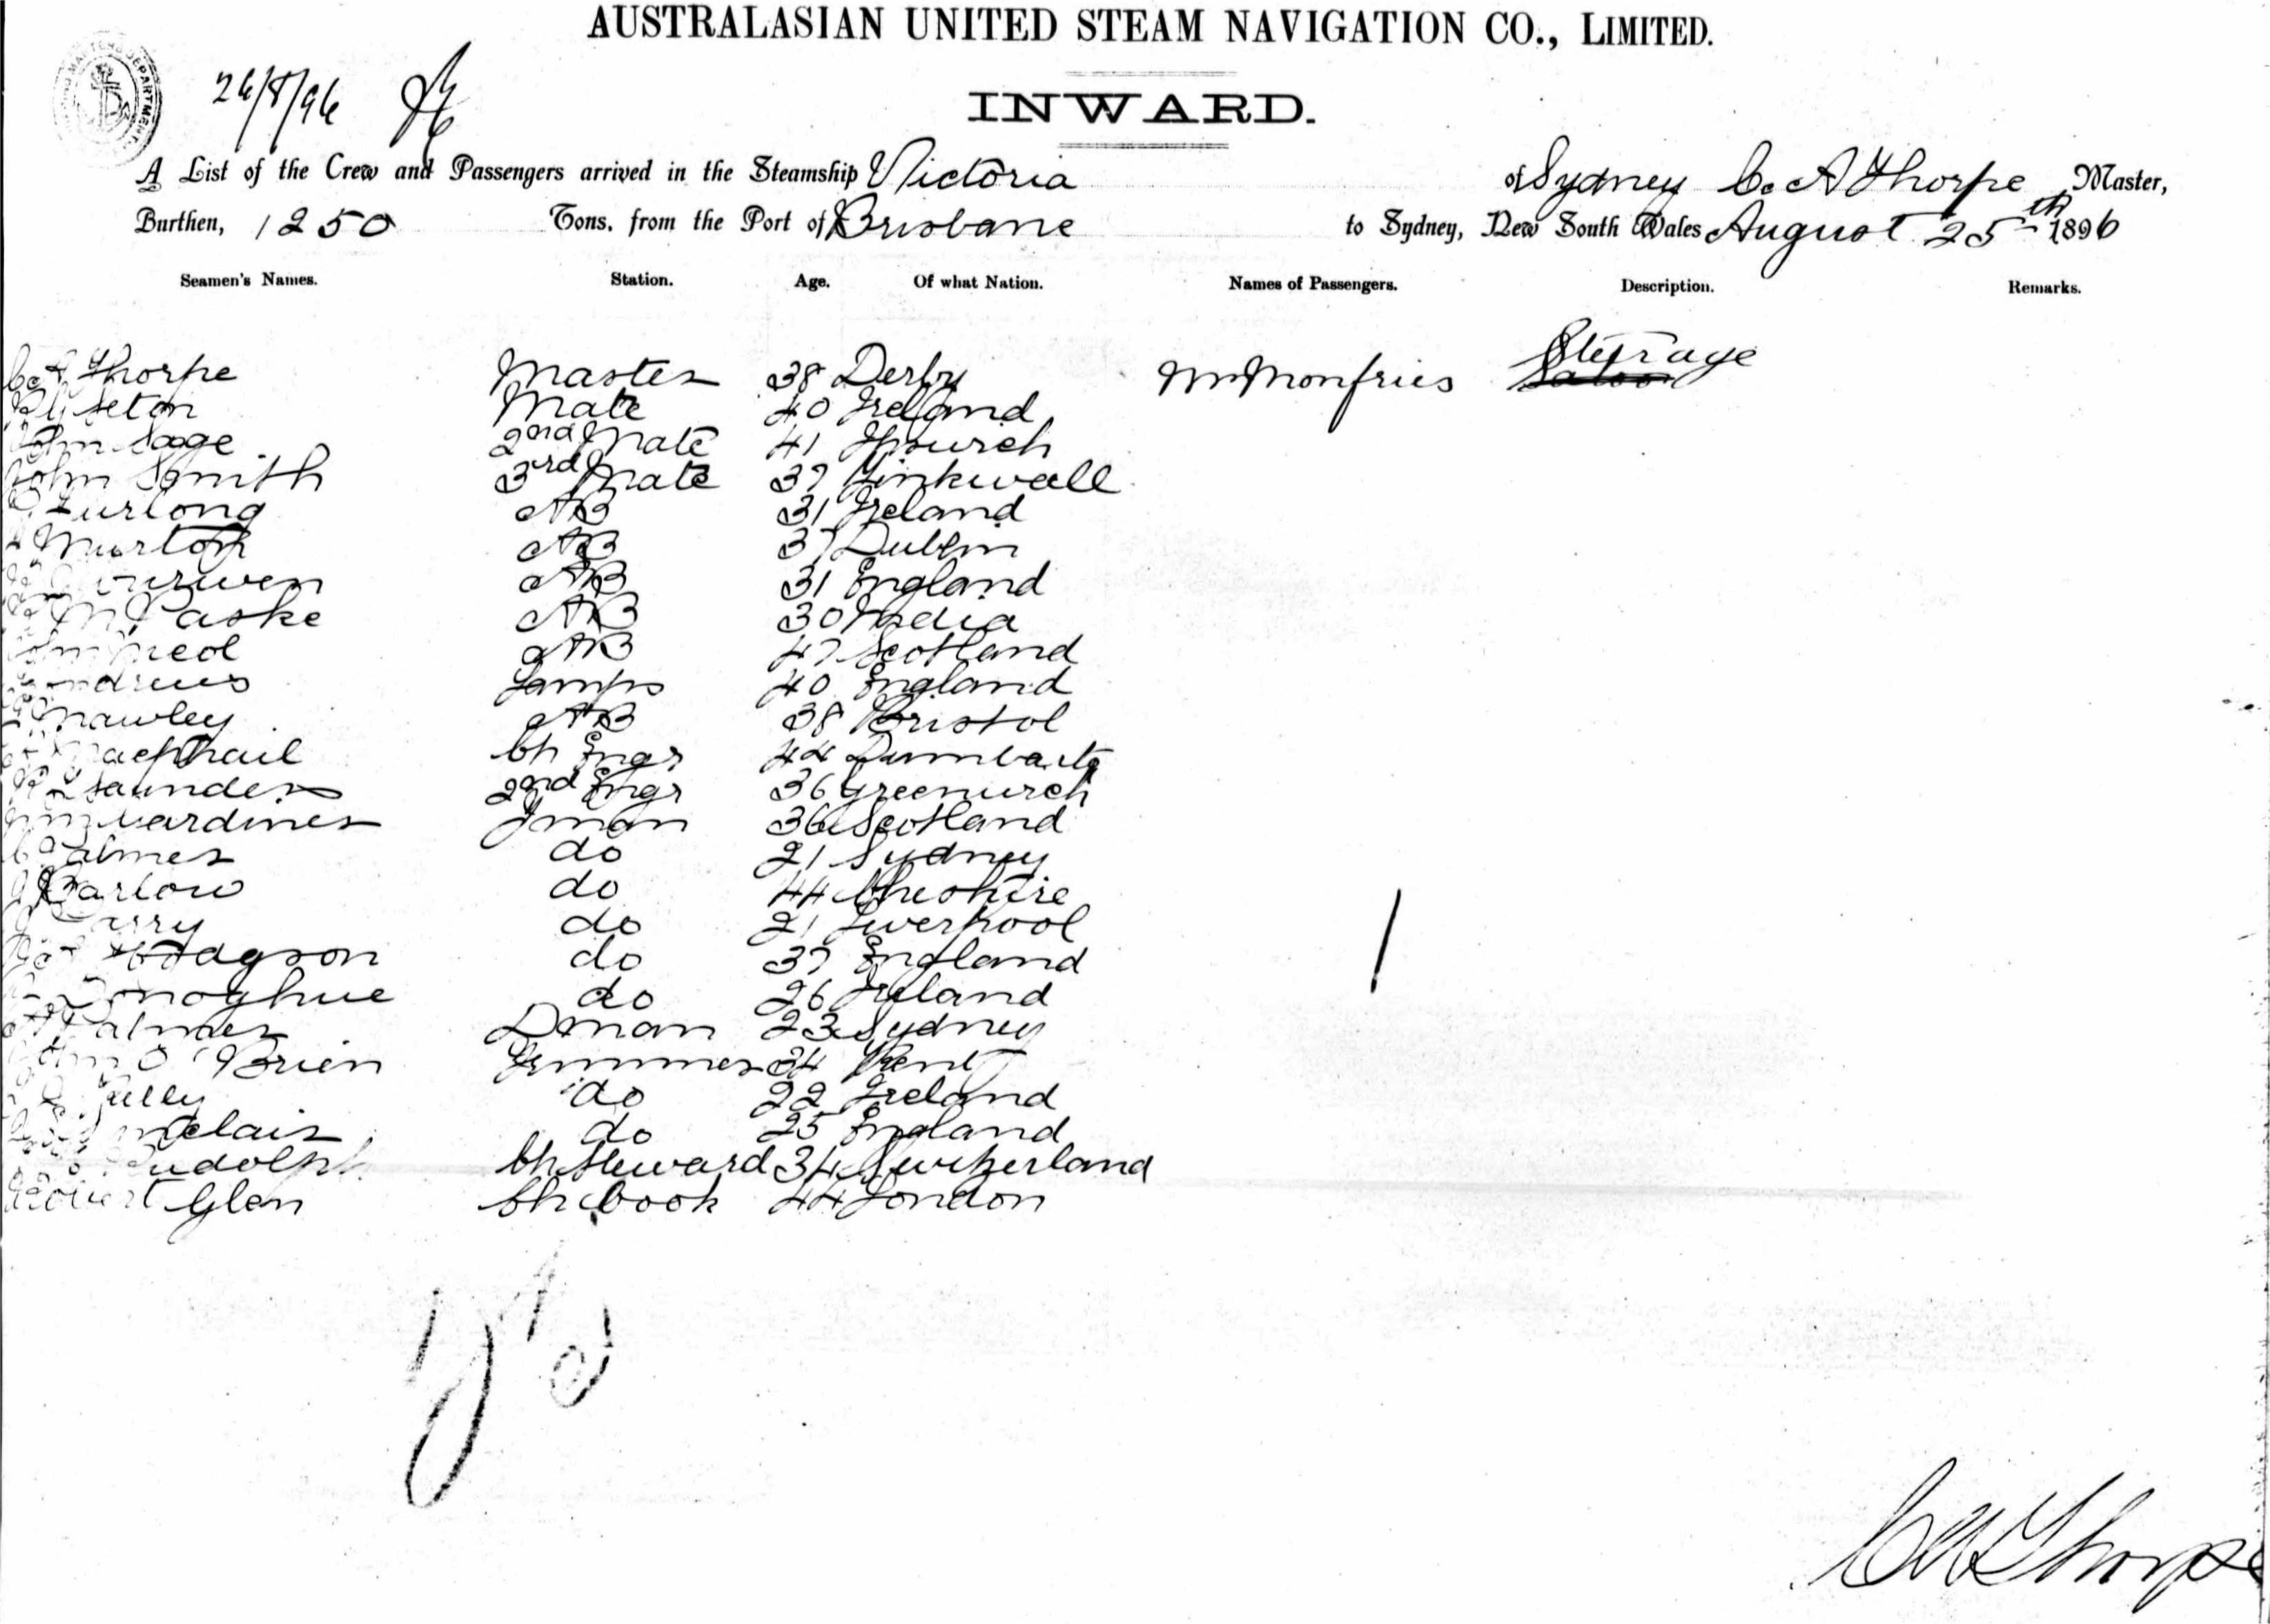 AUSTRALASIAN UNITED STEAM NAVIGATION CO., LIMITED.
26/8/96
INWARD.
A List of the Crew and Passengers arrived in the Steamship Victoria of Sydney C. A Thorpe, Master,
Burthen, 1250 Tons, from the Port of Brisbane to Sydney, New South Wales August 25th 1896
Seamen's Names. Station. Age. Of what Nation. Names of Passengers. Description. Remarks.
Steerage
C A Thorpe Master 38 Derby Mr Monfries Saloon
Seton Mate 40 Ireland
John Sage 2nd Mate 41 Ipswich
John Smith 3rd Mate 37 Kirkwall
Furlong AB 31 Ireland
Murton AB 37 Dublin
AB 31 England
AB 30 India
AB 47 Scotland
Andrews Lamps 40 England
Mawley AB 38 Bristol
Macphail Ch Engr 44
Saunders 2nd Engr 36 Greenwich
Fman 36 Scotland
do 21 Sydney
Barlow do 44 Cheshire
do 21 Liverpool
Hodgson do 37 England
Donoghue do 26 Ireland
Palmer Dman 23 Sydney
John O'Brien Trimmer 24 Kent
do 22 Ireland
Sinclair do 25 England
Rudolph Ch Steward 34 Switzerland
Robert Glen Ch Cook 44 London
CA Thorpe